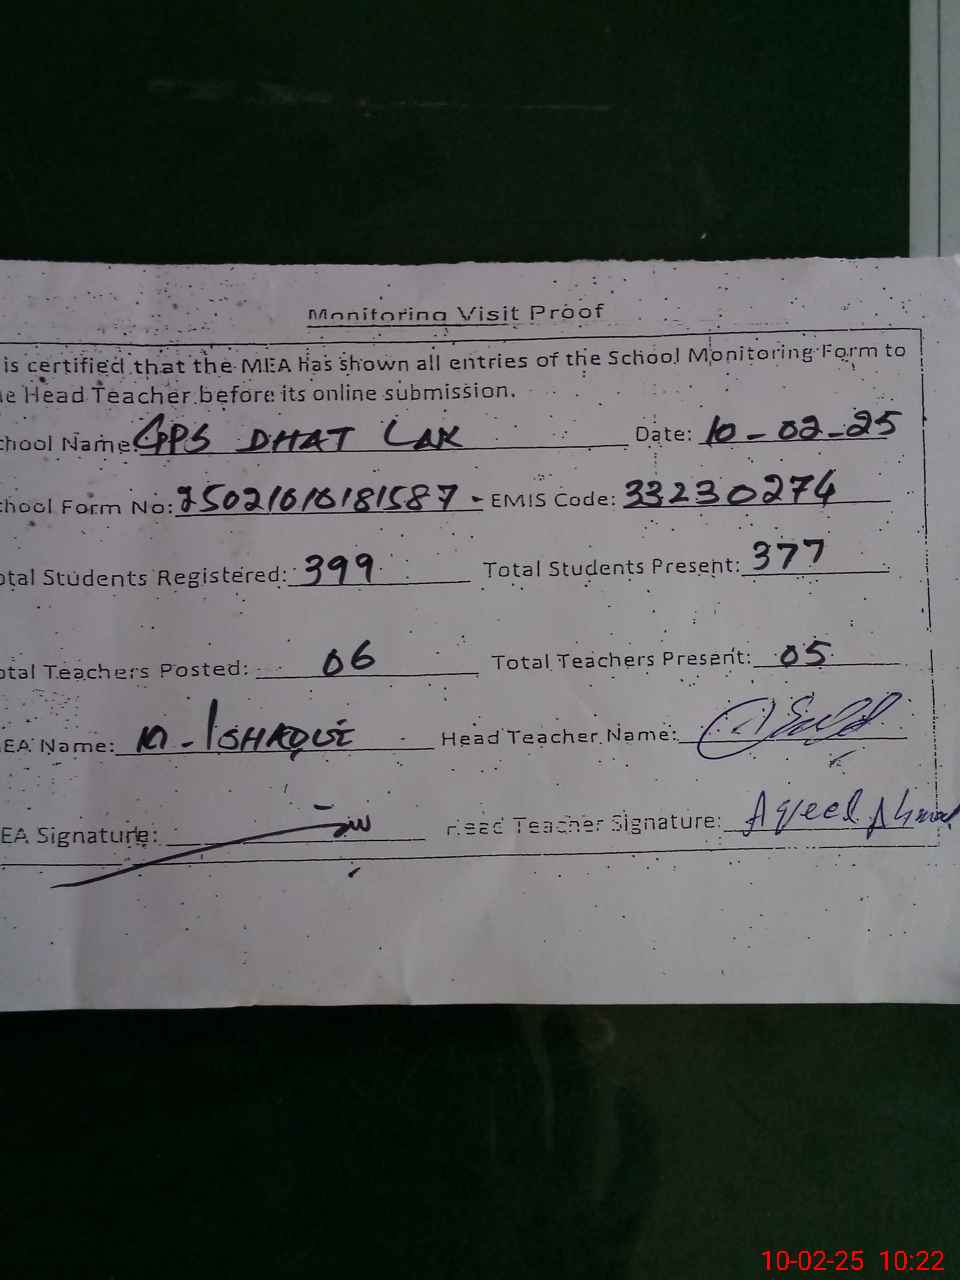 Monitoring Visit Proof
is certified that the MEA has shown all entries of the School Monitoring Form to
e Head Teacher before its online submission.
chool Name: GPS DHAT LAK Date: 10-02-25
chool Form No: 25021010181587 - EMIS Code: 33230274
otal Students Registered: 399 Total Students Present: 377
otal Teachers Posted: 06 Total Teachers Present: 05
EA Name: M-ISHAQUE Head Teacher Name:
EA Signature: Head Teacher Signature: Aqeel Ahmad
10-02-25 10:22